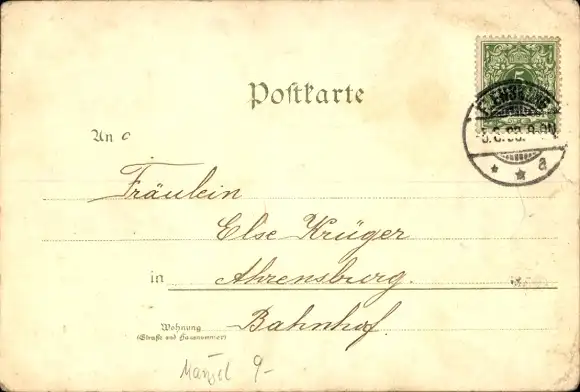 Postkarte
5
FLENSBURG
a
An
Fräulein
Else Krüger
in Ahrensburg.
Wohnung
(Straße und Hausnummer)
Bahnhof.
9-